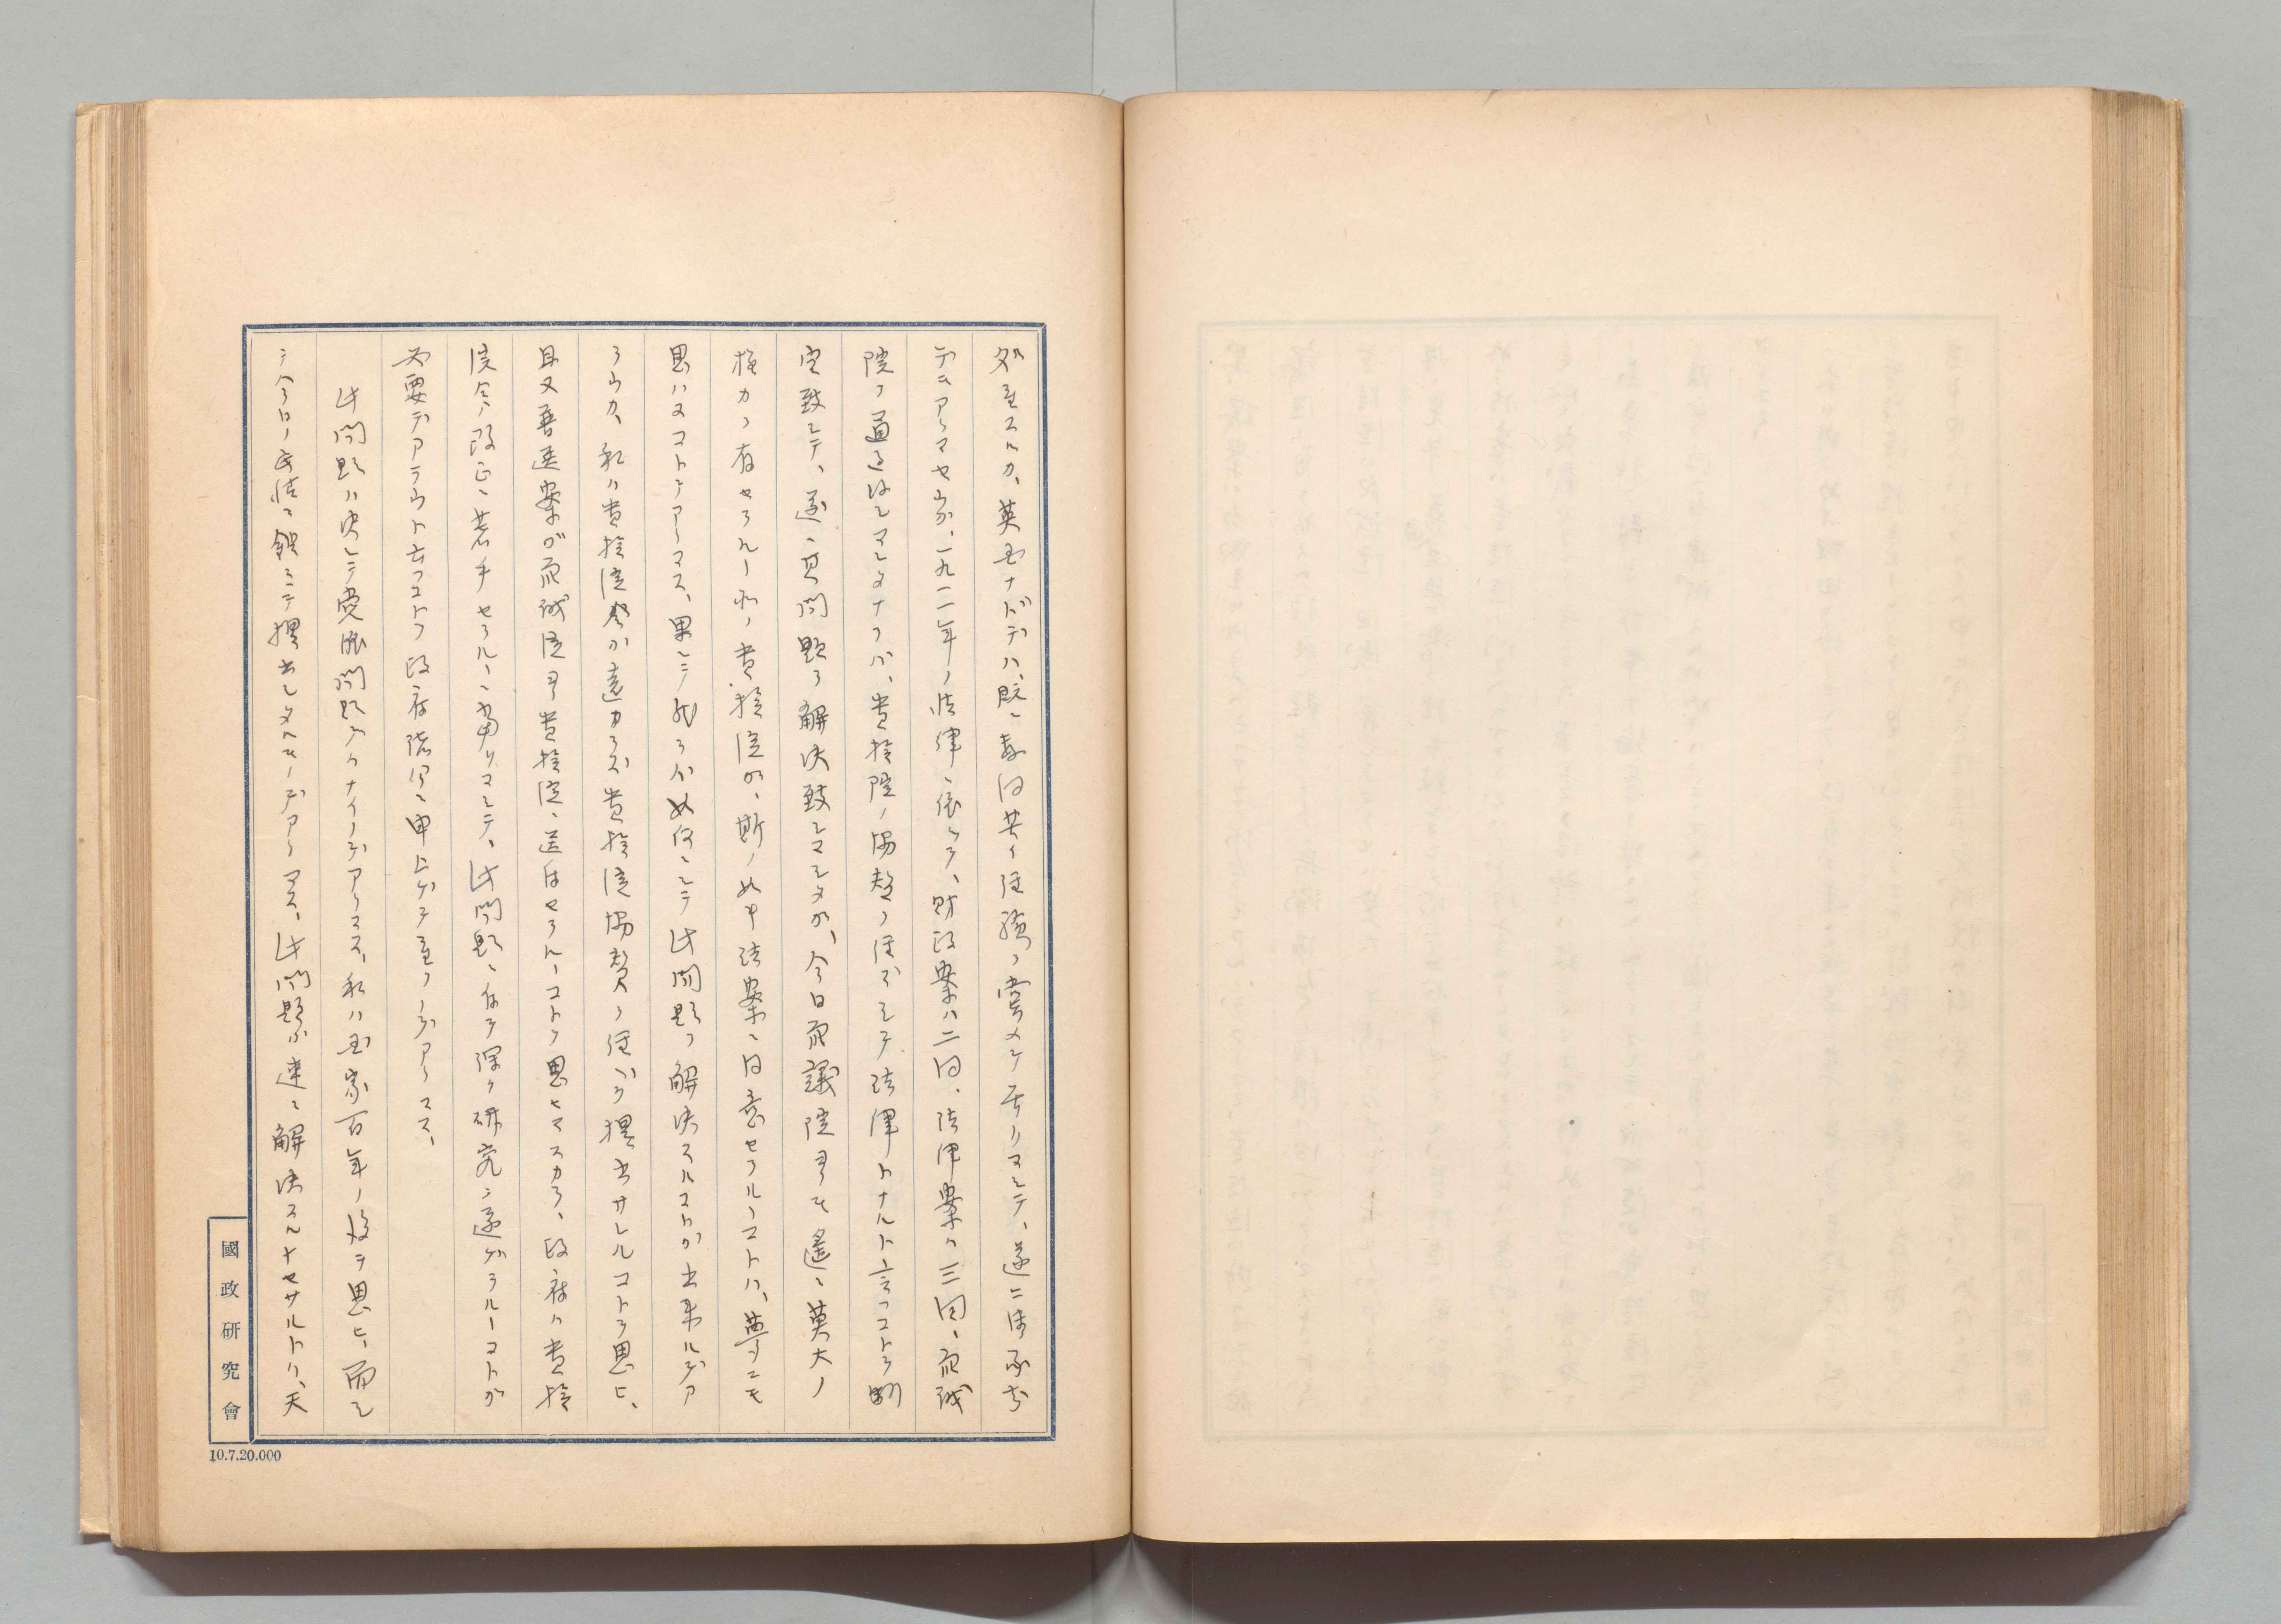 処置スルカ、英国ナドデハ、既ニ数回苦イ経験ヲ嘗メテ居リマシテ、遂ニ御承知
デモアリマセウガ、一九一一年ノ法律ニ依ッテ、財政案ハ二回、法律案ハ三回、衆議
院ヲ通過致シマシタナラバ、貴族院ノ協賛ヲ経ズシテ法律トナルト言フコトヲ制
定致シテ、遂ニ其問題ヲ解決致シマシタガ、今日衆議院ヨリモ遥ニ莫大ノ
権力ヲ有セラルヽ所ノ貴族院ガ、斯ノ如キ法案ニ同意セラルヽコトハ、夢ニモ
思ハヌコトデアリマス、果シテ然ラバ如何ニシテ此問題ヲ解決スルコトガ出来ルデア
ラウカ、私ハ貴族院令ガ遠カラズ貴族院協賛ヲ経ベク提出サレルコトヲ思ヒ、
且又普選案ガ衆議院ヨリ貴族院ニ送付セラルヽコトヲ思ヒマスカラ、政府ハ貴族
院令ノ改正ニ着手セラルヽニ当リマシテ、此問題ニ付テ深ク研究ヲ遂ゲラルヽコトガ
必要デアラウト云フコトヲ政府諸公ニ申上ゲテ置クノデアリマス、
此問題ハ決シテ党派問題デハナイノデアリマス、私ハ国家百年ノ後ヲ思ヒ、而シ
テ今日ノ政情ニ鑑ミテ提出シタノデアリマス、此問題ガ速ニ解決スルニ非ザルトハ、天
國政研究會
10.7.20.000